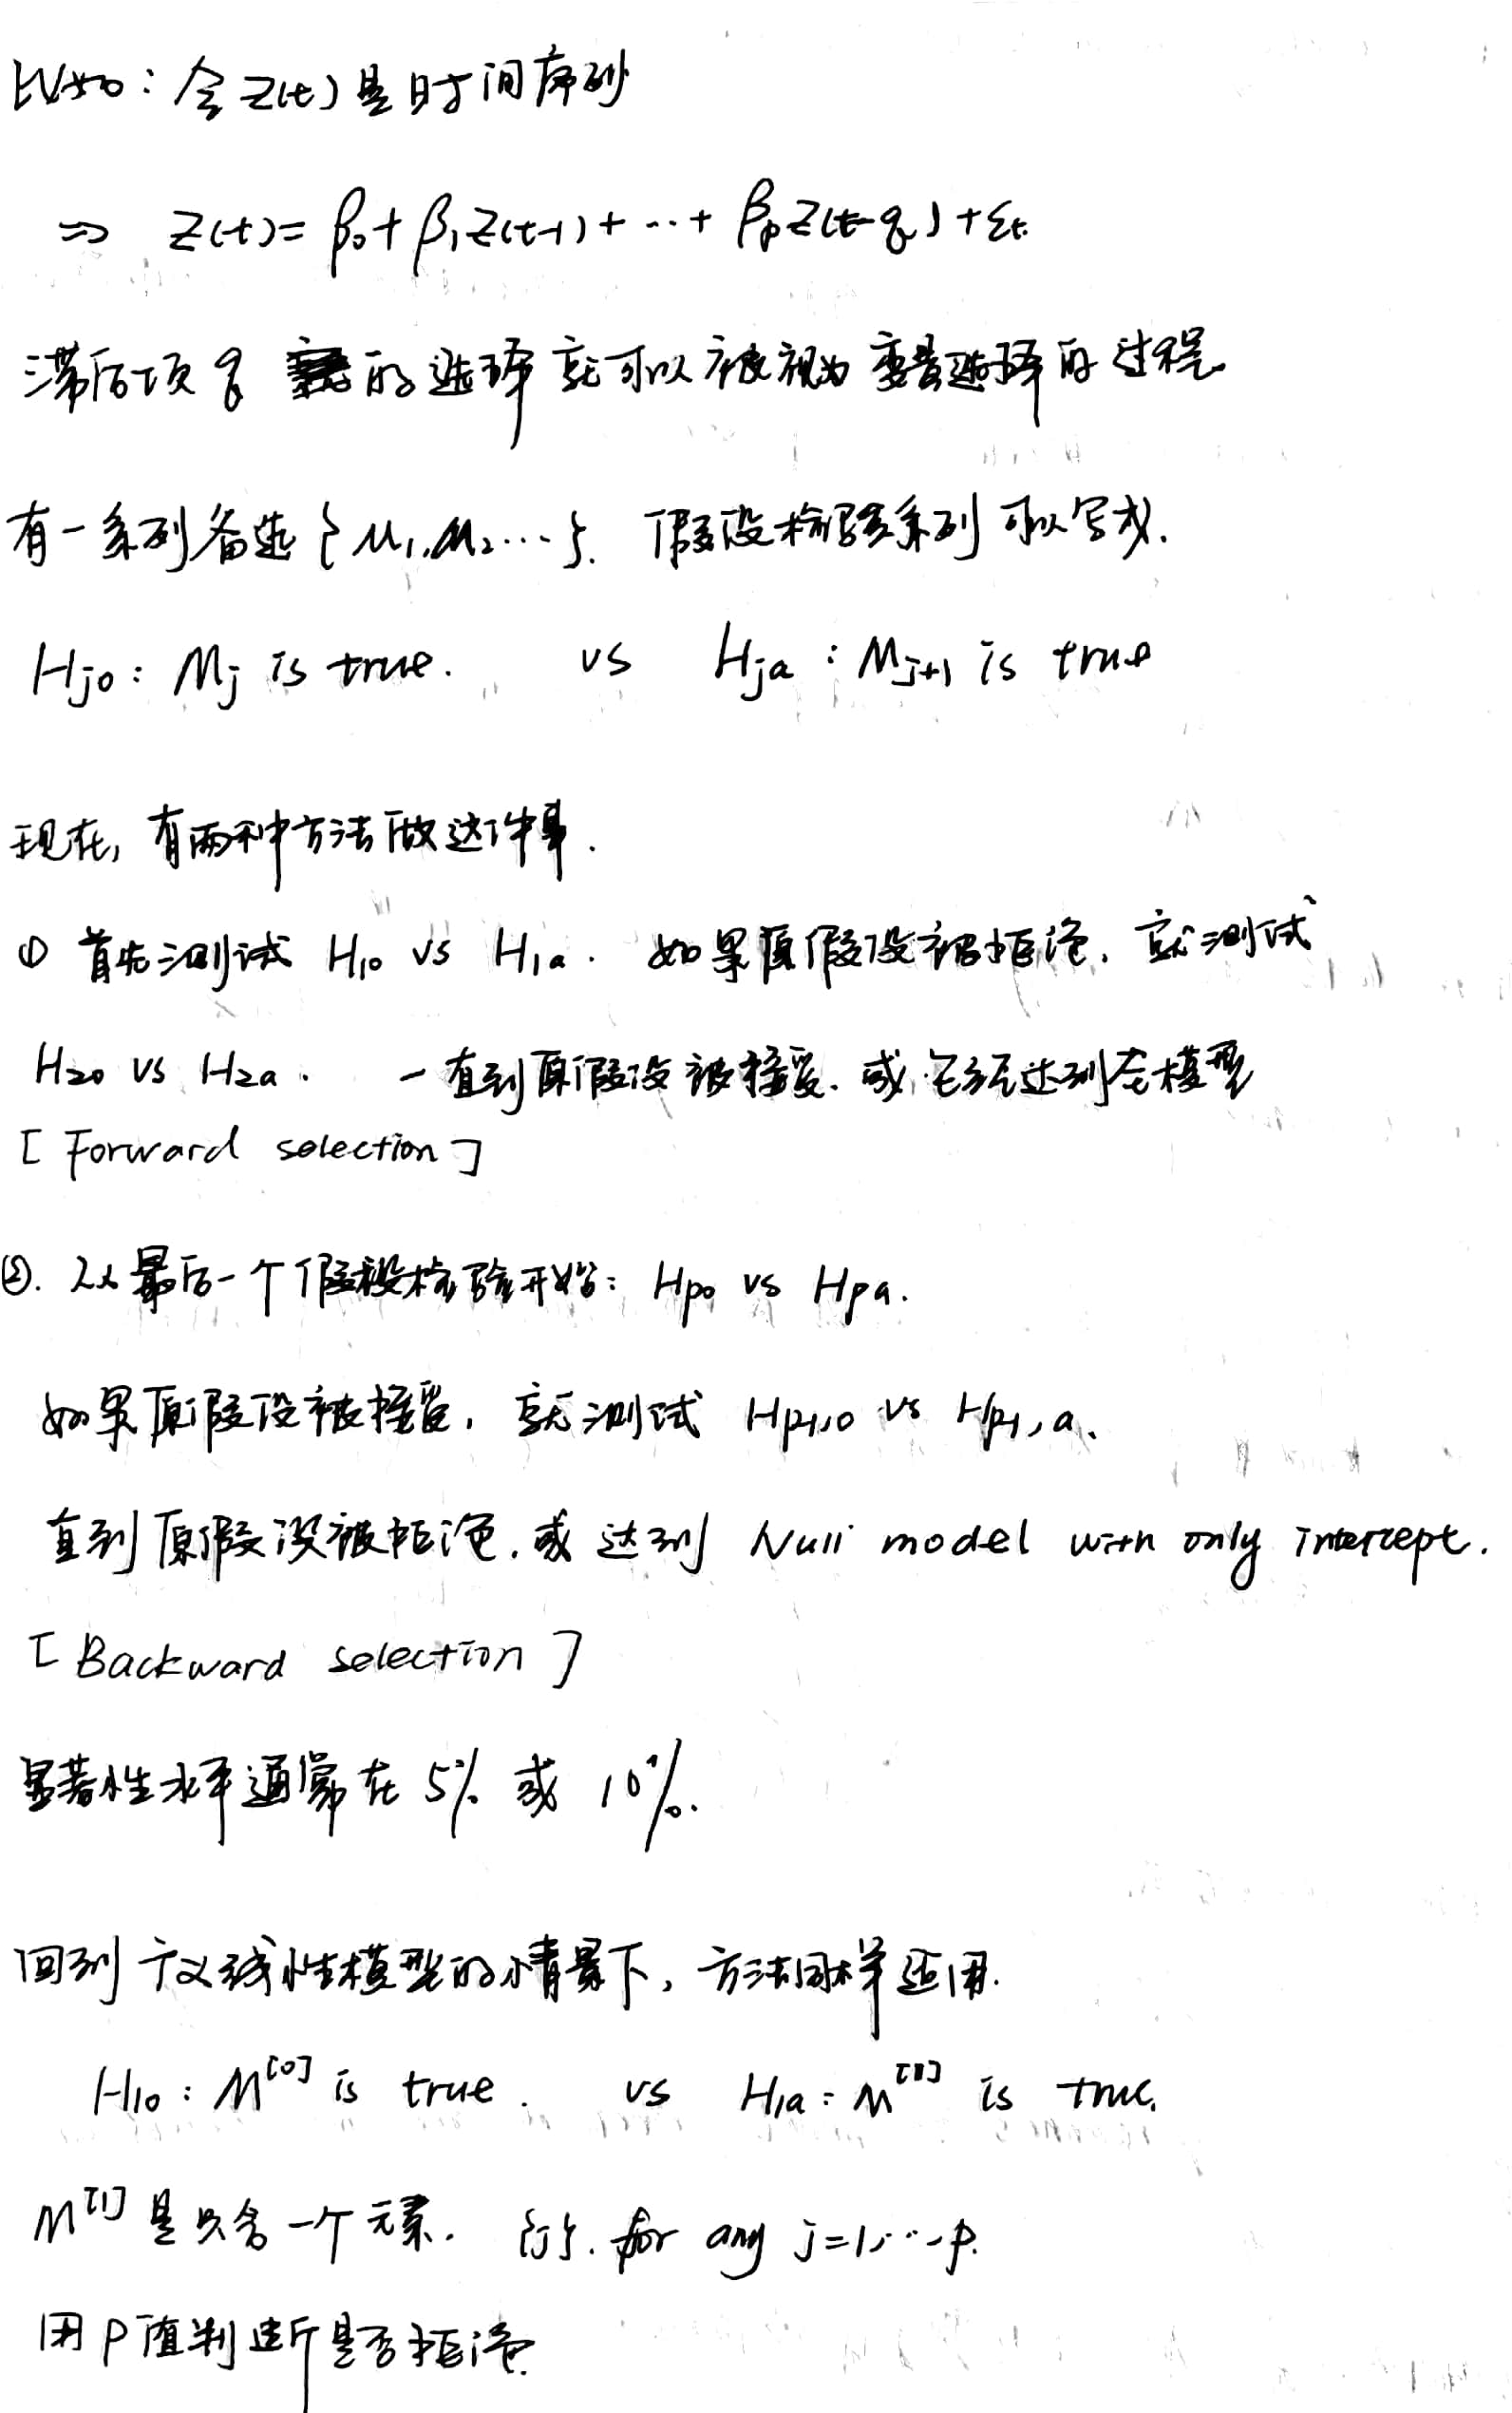 比如：令 Z(t) 是时间序列
⇒ Z(t) = β₀ + β₁Z(t-1) + ⋯ + βₚZ(t-q) + εt.
滞后项 q 的选择就可以被视为变量选择的过程.
有一系列备选 {M₁, M₂ ⋯}. 假设检验系列可以写成.
Hj0 : Mj is true. vs Hja : Mj+1 is true
现在, 有两种方法做这件事.
① 首先测试 H10 vs H1a. 如果原假设被拒绝, 就测试
H20 vs H2a. 一直到原假设被接受. 或已经达到全模型
[Forward selection]
②. 以最后一个假设检验开始: Hp0 vs Hpa.
如果原假设被接受, 就测试 Hp-1,0 vs Hp-1,a.
直到原假设被拒绝. 或达到 Null model with only intercept.
[Backward selection]
显著性水平通常在 5% 或 10%.
回到广义线性模型的情景下, 方法同样适用.
H10 : M^[0] is true. vs H1a : M^[1] is true.
M^[1] 是只含一个元素. {j}. for any j=1,⋯,p.
用 P 值判断是否拒绝.